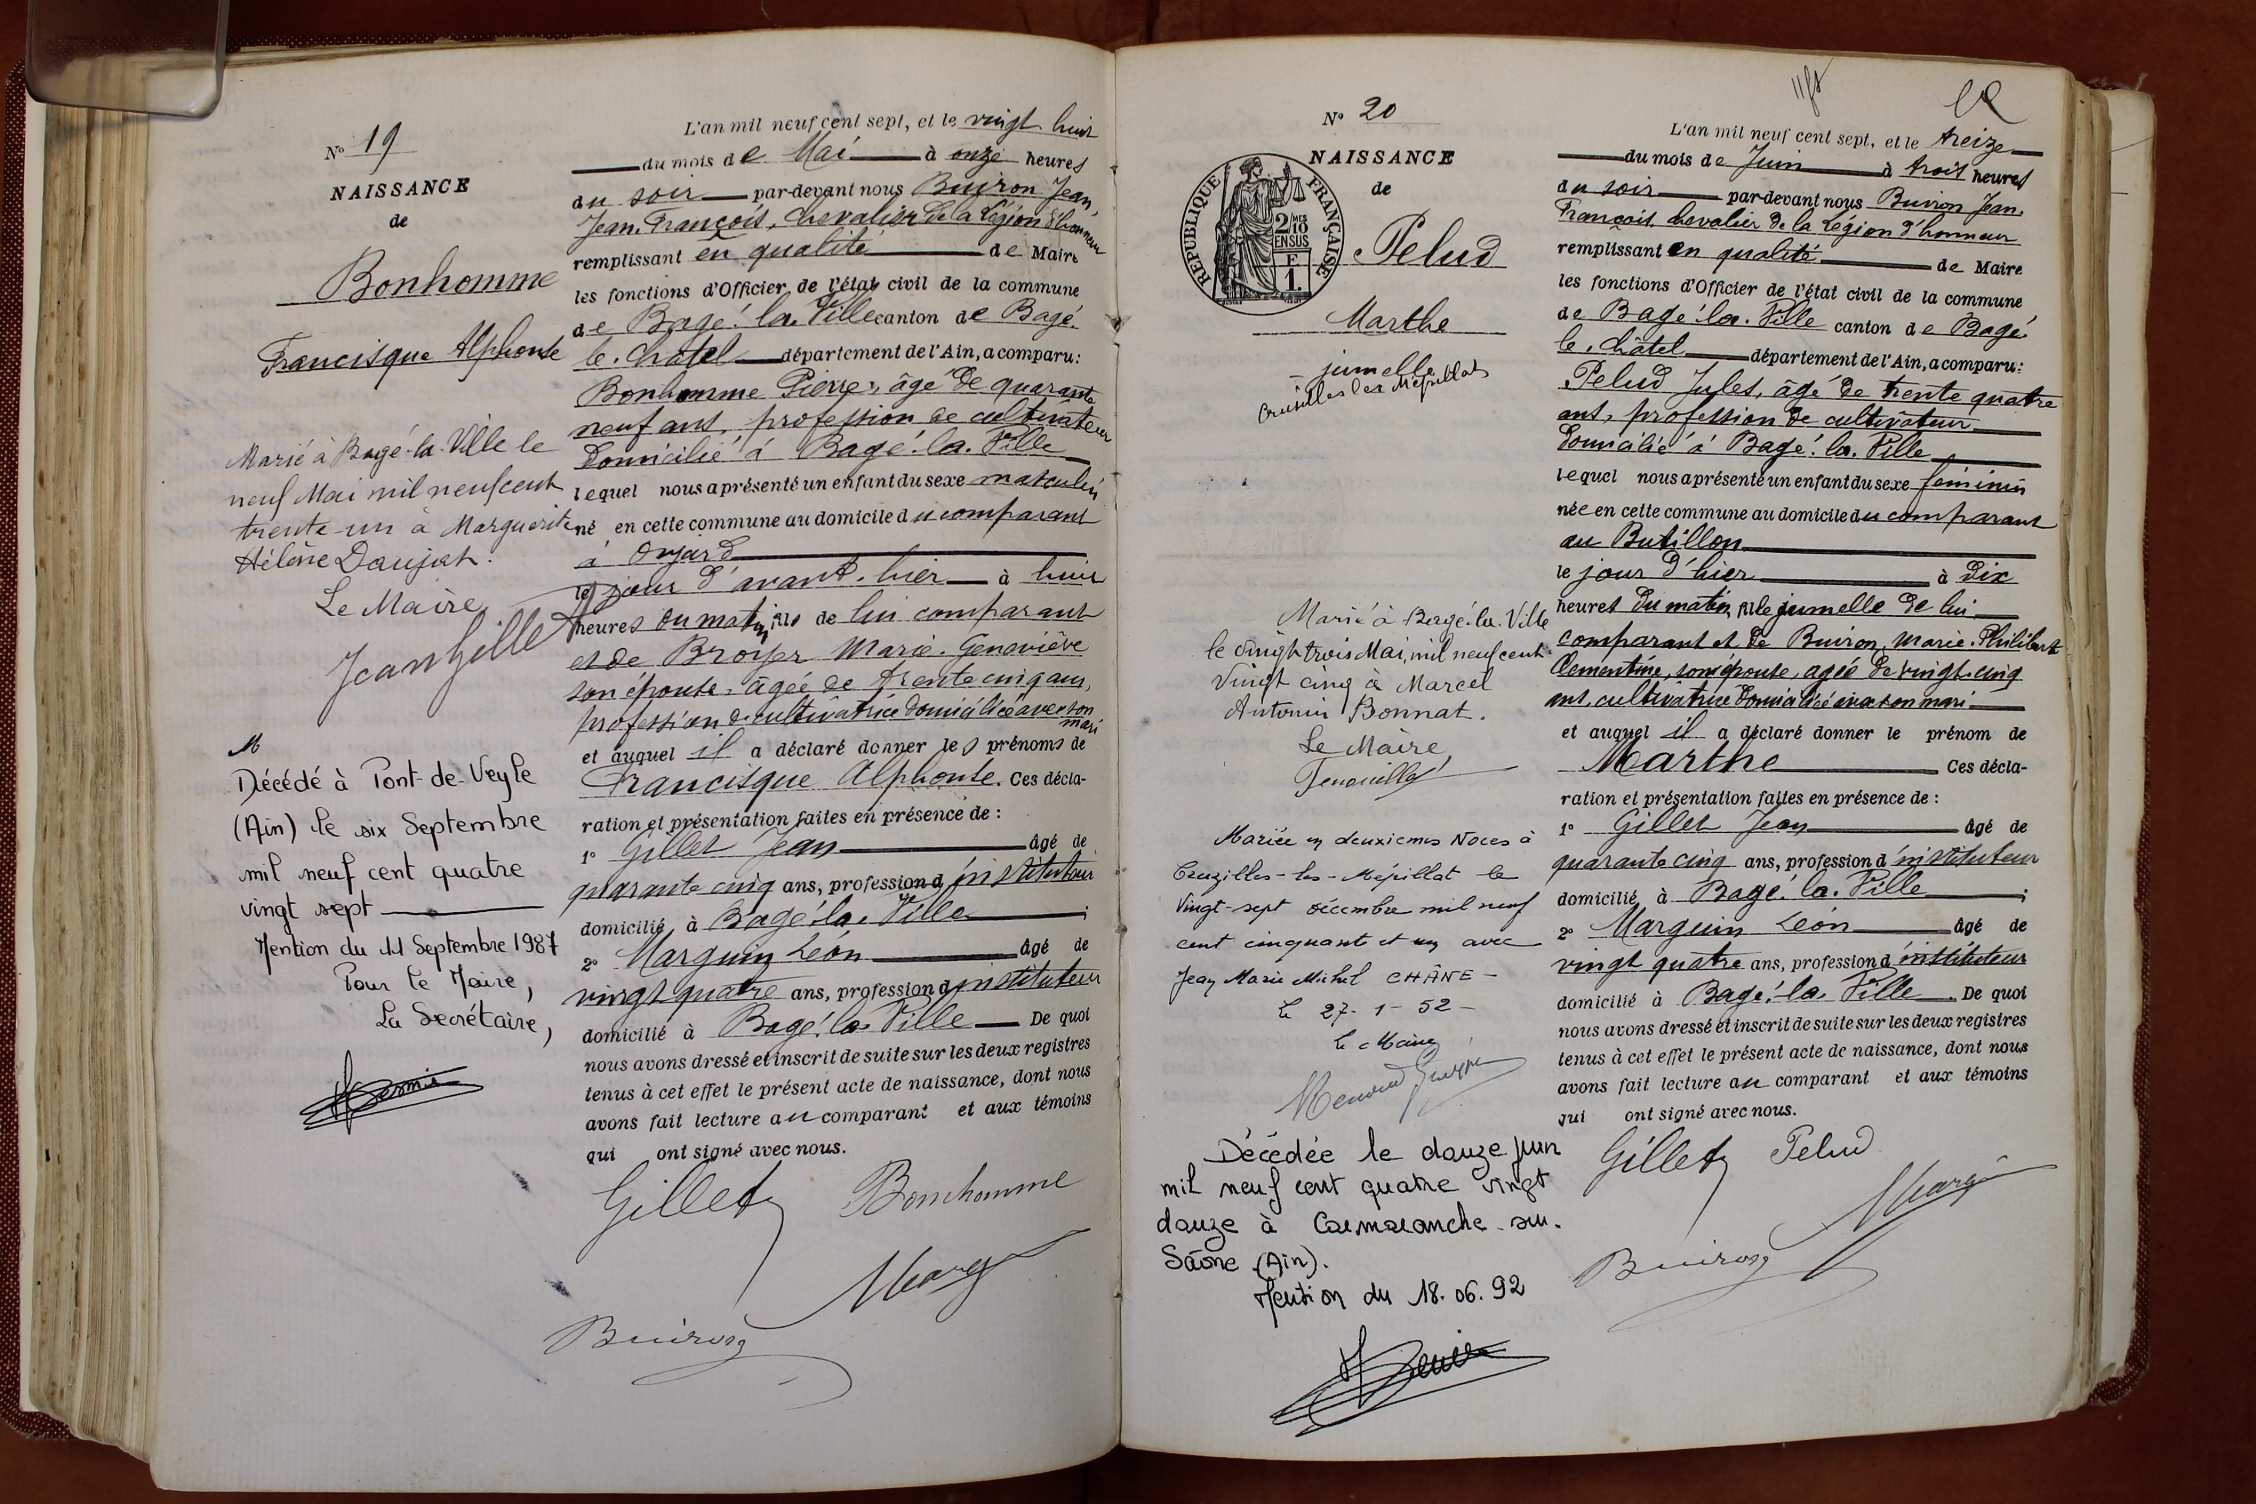 N° 19
NAISSANCE
de
Bonhomme
Francisque Alphonse
Marié à Bagé-la-Ville le
neuf Mai mil neuf cent
trente-un à Marguerite
Hélène Daujat.
Le Maire
Jean Gillet
Décédé à Pont-de-Veyle
(Ain) le six Septembre
mil neuf cent quatre
vingt sept
Mention du 11 Septembre 1987
Pour le Maire,
La Secrétaire,
L'an mil neuf cent sept, et le vingt huit
du mois de Mai à onze heures
du soir par-devant nous Buiron Jean,
Jean François, chevalier de la Légion d'honneur
remplissant en qualité de Maire
les fonctions d'Officier de l'état civil de la commune
de Bagé-la-Ville canton de Bagé
le-Châtel département de l'Ain, a comparu:
Bonhomme Pierre, âgé de quarante
neuf ans, profession de cultivateur
domicilié à Bagé-la-Ville
lequel nous a présenté un enfant du sexe masculin
né en cette commune au domicile du comparant
à
le jour d'avant-hier à huit
heures du matin, fils de lui comparant
et de Broyer Marie-Geneviève
son épouse, âgée de trente cinq ans,
profession de cultivatrice domiciliée avec son
mari
et auquel il a déclaré donner les prénoms de
Francisque Alphonse. Ces décla-
ration et présentation faites en présence de :
1° Gillet Jean âgé de
quarante cinq ans, profession d'instituteur
domicilié à Bagé-la-Ville ;
2° Marguin Léon âgé de
vingt quatre ans, profession d'instituteur
domicilié à Bagé-la-Ville De quoi
nous avons dressé et inscrit de suite sur les deux registres
tenus à cet effet le présent acte de naissance, dont nous
avons fait lecture au comparant et aux témoins
qui ont signé avec nous.
Gillet Bonhomme
Buiron
N° 20
NAISSANCE
de
RÉPUBLIQUE FRANÇAISE
2/10 MES
EN SUS
F
1.
Pelud
Marthe
jumelle
Cruzilles les Mépillat
Marié à Bagé-la-Ville
le vingt trois Mai mil neuf cent
vingt cinq à Marcel
Antonin Bonnat.
Le Maire
Mariée en deuxièmes Noces à
Cruzilles-les-Mépillat le
vingt-sept décembre mil neuf
cent cinquante et un avec
Jean Marie Michel CHÂNE -
le 27-1-52-
le Maire
Décédée le douze juin
mil neuf cent quatre vingt
douze à Cormoranche-sur-
Saône (Ain).
Mention du 18.06.92
L'an mil neuf cent sept, et le treize
du mois de Juin à trois heures
du soir par-devant nous Buiron Jean,
François, chevalier de la Légion d'honneur
remplissant en qualité de Maire
les fonctions d'Officier de l'état civil de la commune
de Bagé-la-Ville canton de Bagé
le-Châtel département de l'Ain, a comparu:
Pelud Jules, âgé de trente quatre
ans, profession de cultivateur
domicilié à Bagé-la-Ville
lequel nous a présenté un enfant du sexe féminin
née en cette commune au domicile du comparant
au Butillon
le jour d'hier à dix
heures du matin, fille jumelle de lui
comparant et de Buiron, Marie-Philiberte
Clémentine, son épouse, agée de vingt-cinq
ans, cultivatrice domiciliée avec son mari
et auquel il a déclaré donner le prénom de
Marthe Ces décla-
ration et présentation faites en présence de :
1° Gillet Jean âgé de
quarante cinq ans, profession d'instituteur
domicilié à Bagé-la-Ville ;
2° Marguin Léon âgé de
vingt quatre ans, profession d'instituteur
domicilié à Bagé-la-Ville. De quoi
nous avons dressé et inscrit de suite sur les deux registres
tenus à cet effet le présent acte de naissance, dont nous
avons fait lecture au comparant et aux témoins
qui ont signé avec nous.
Gillet Pelud
Buiron